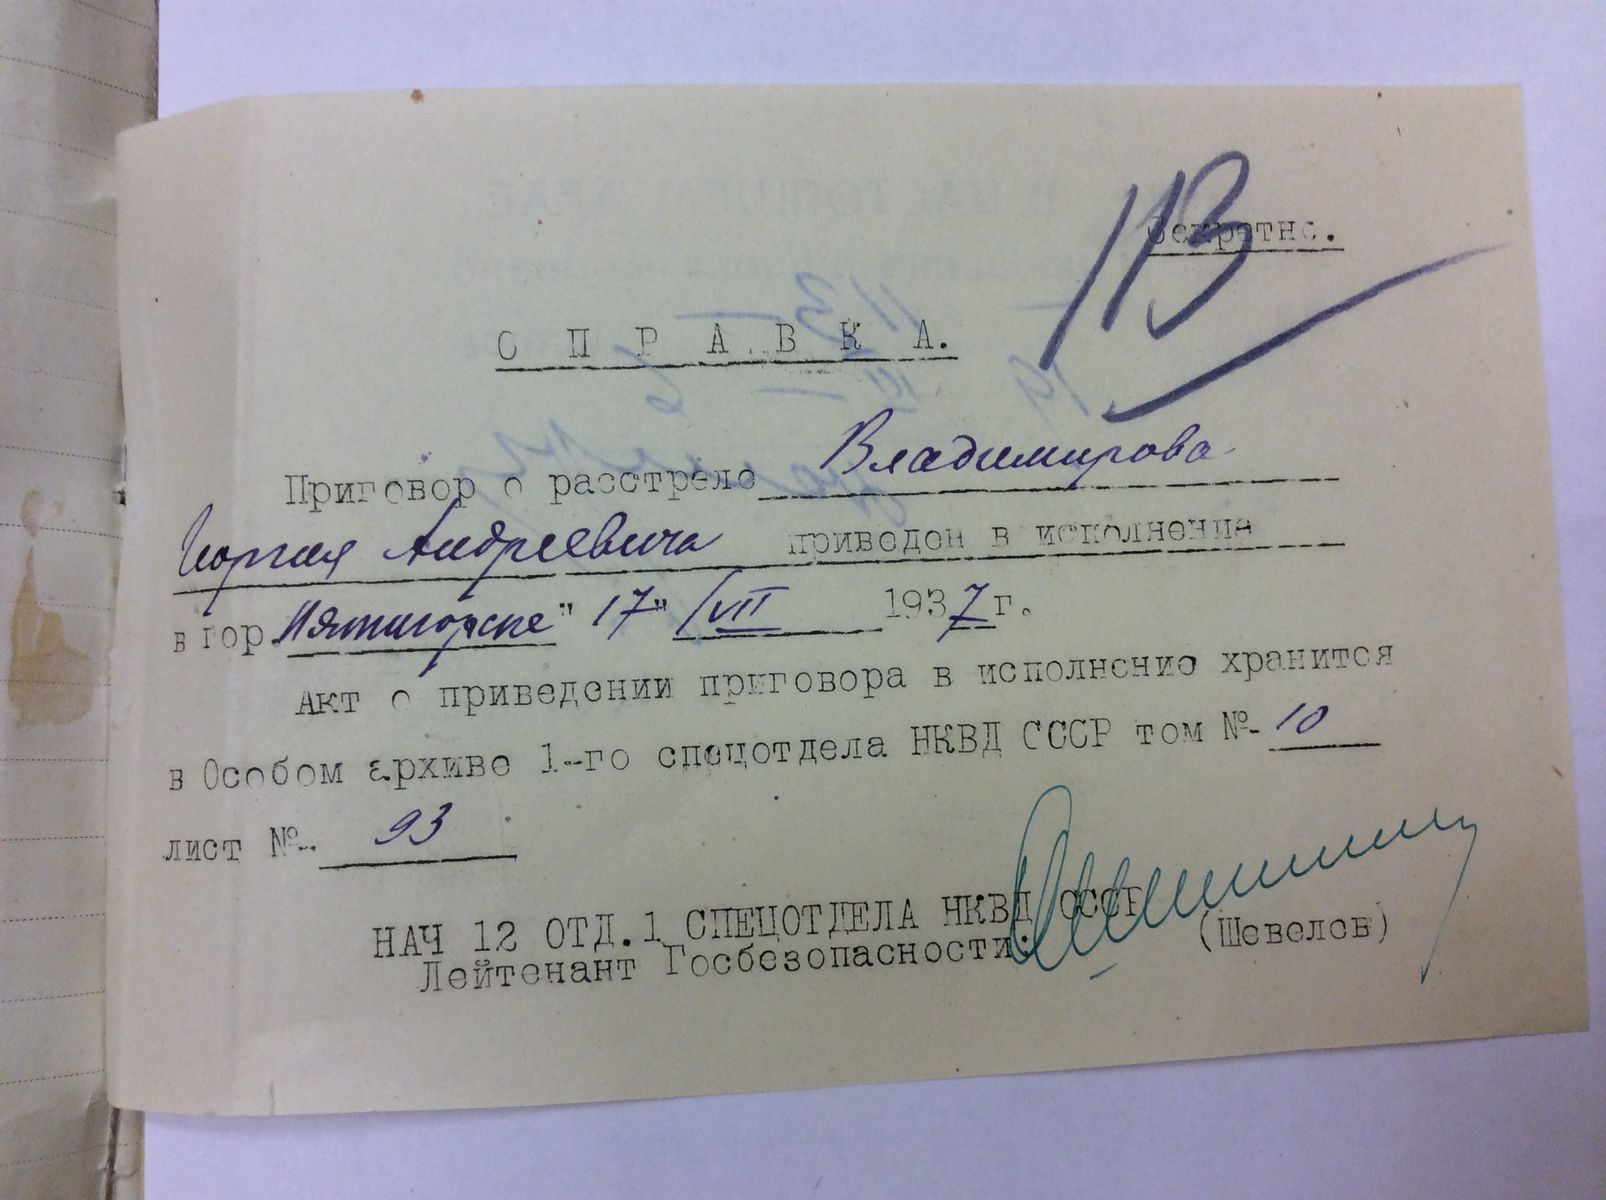 113
Секретно.
С П Р А В К А.
Приговор о расстреле Владимирова
Георгия Андреевича приведен в исполнение
в гор. Пятигорске "17" VII 1937 г.
Акт о приведении приговора в исполнение хранится
в Особом архиве 1-го спецотдела НКВД СССР том № 10
лист № 93
НАЧ 12 ОТД. 1 СПЕЦОТДЕЛА НКВД СССР
Лейтенант Госбезопасности:
(Шевелев)